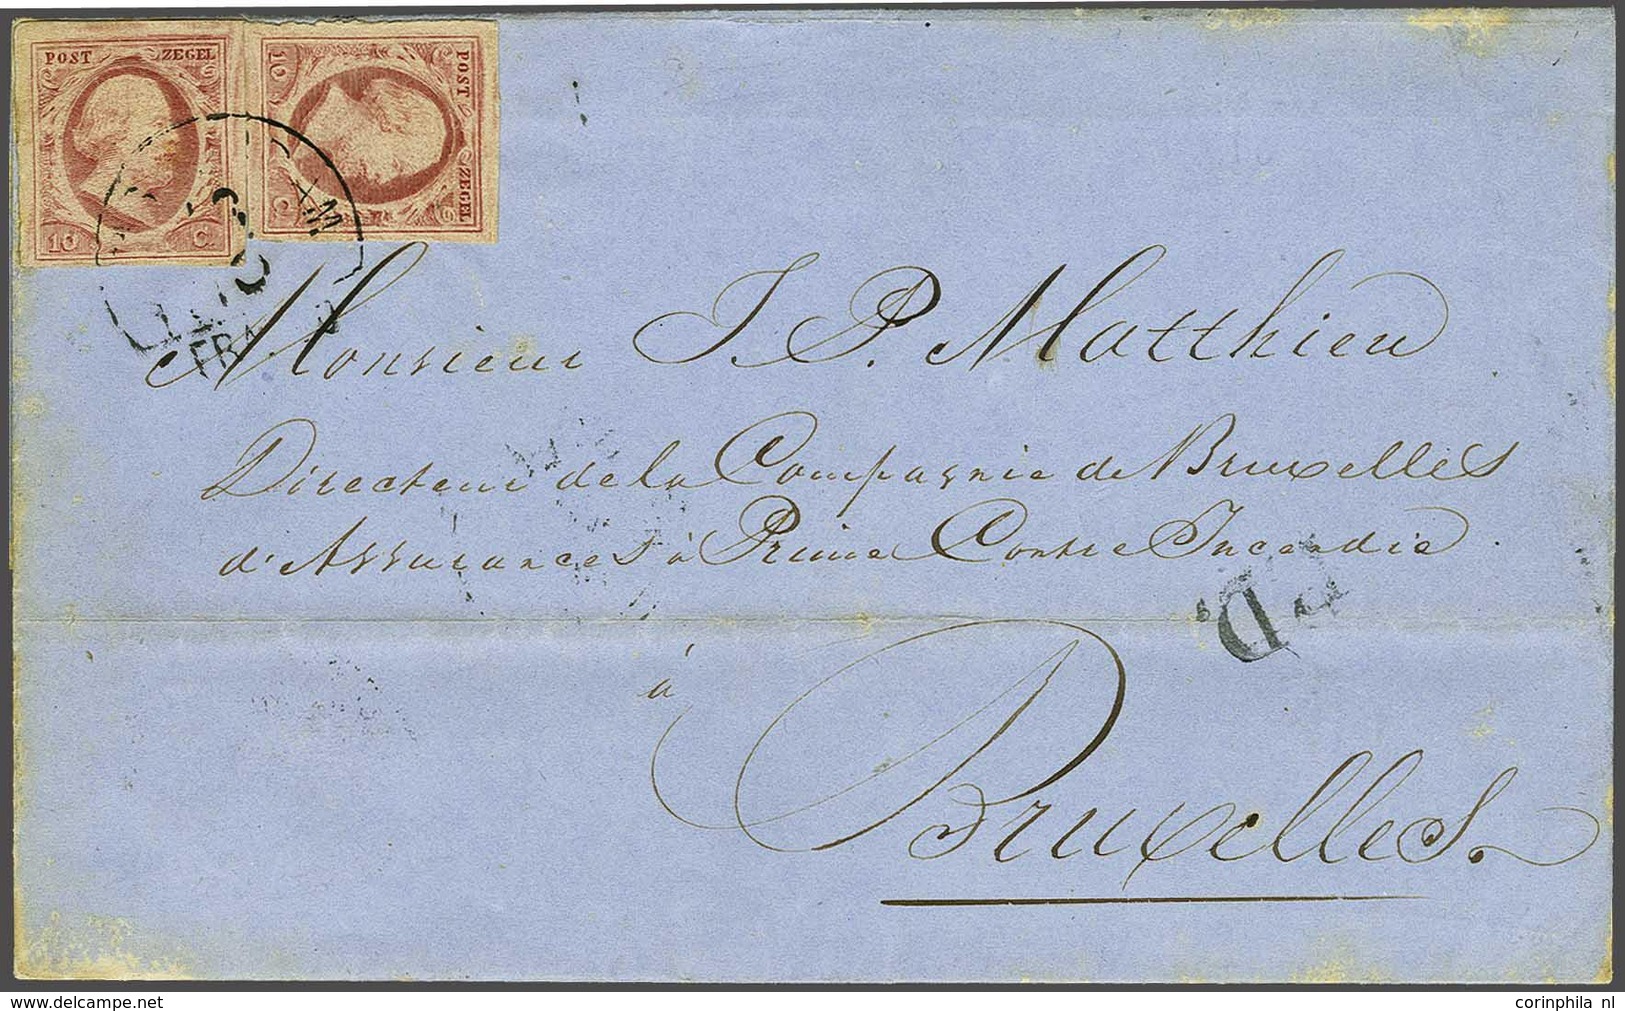 POST ZEGEL
10 C.
POST ZEGEL
10 C.
FRA
Monsieur J. P. Matthieu
Directeur de la Compagnie de Bruxelles
d'Assurances à Prime Contre Incendie.
PD.
à
Bruxelles.
www.delcampe.net
corinphila nl